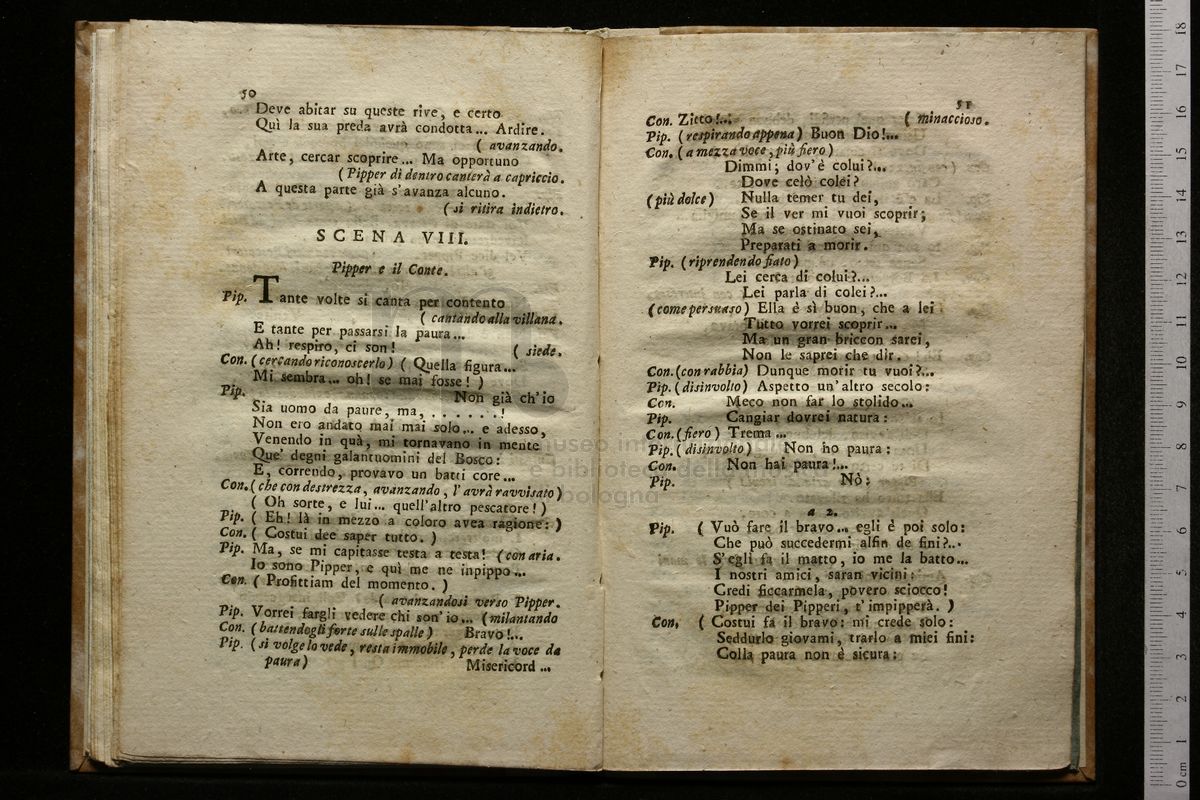 50
Deve abitar su queste rive, e certo
Quì la sua preda avrà condotta... Ardire.
( avanzando.
Arte, cercar scoprire... Ma opportuno
(Pipper di dentro canterà a capriccio.
A questa parte già s'avanza alcuno.
(si ritira indietro.
SCENA VIII.
Pipper e il Conte.
Pip. Tante volte si canta per contento
( cantando alla villana.
E tante per passarsi la paura...
Ah! respiro, ci son! ( siede.
Con. (cercando riconoscerlo) ( Quella figura...
Mi sembra... oh! se mai fosse! )
Pip. Non già ch'io
Sia uomo da paure, ma, . . . . . . !
Non ero andato mai mai solo... e adesso,
Venendo in quà, mi tornavano in mente
Que' degni galantuomini del Bosco:
E, correndo, provavo un batti core...
Con. (che con destrezza, avanzando, l'avrà ravvisato)
( Oh sorte, e lui... quell'altro pescatore!)
Pip. ( Eh! là in mezzo a coloro avea ragione: )
Con. ( Costui dee saper tutto. )
Pip. Ma, se mi capitasse testa a testa! (con aria.
Io sono Pipper, e quì me ne inpippo...
Con. ( Profittiam del momento. )
( avanzandosi verso Pipper.
Pip. Vorrei fargli vedere chi son' io... (milantando
Con. (battendogli forte sulle spalle) Bravo!...
Pip. (si volge lo vede, resta immobile, perde la voce da
paura) Misericord...
51
Con. Zitto!... ( minaccioso.
Pip. (respirando appena) Buon Dio!...
Con. (a mezza voce, più fiero)
Dimmi; dov'è colui?...
Dove celò colei?
(più dolce) Nulla temer tu dei,
Se il ver mi vuoi scoprir;
Ma se ostinato sei,
Preparati a morir.
Pip. (riprendendo fiato)
Lei cerca di colui?...
Lei parla di colei?...
(come persuaso) Ella è sì buon, che a lei
Tutto vorrei scoprir...
Ma un gran briccon sarei,
Non le saprei che dir.
Con. (con rabbia) Dunque morir tu vuoi?...
Pip. (disinvolto) Aspetto un'altro secolo:
Con. Meco non far lo stolido...
Pip. Cangiar dovrei natura:
Con. (fiero) Trema...
Pip. (disinvolto) Non ho paura:
Con. Non hai paura!...
Pip. Nò:
a 2.
Pip. ( Vuò fare il bravo... egli è poi solo:
Che può succedermi alfin de fini?...
S'egli fa il matto, io me la batto...
I nostri amici, saran vicini:
Credi ficcarmela, povero sciocco!
Pipper dei Pipperi, t'impipperà. )
Con. ( Costui fa il bravo: mi crede solo:
Seddurlo giovami, trarlo a miei fini:
Colla paura non è sicura:
museo
e biblioteca della
bologna
0 cm 1 2 3 4 5 6 7 8 9 10 11 12 13 14 15 16 17 18